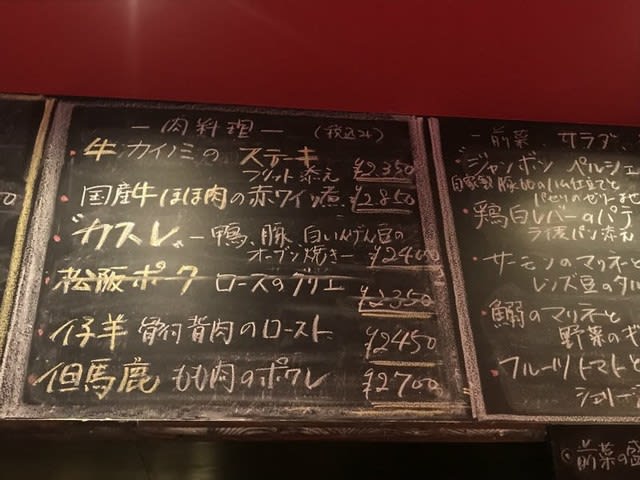 ー 肉料理 ー (税込み)
・牛カイノミの ステーキ
フリット添え ¥2,350
・国産牛ほほ肉の赤ワイン煮 ¥2,850
・"カスレ" ー鴨、豚、白いんげん豆の
オーブン焼きー ¥2400
・松阪ポーク ロースのグリエ ¥2350
・仔羊 骨付背肉のロースト ¥2450
・但馬鹿 もも肉のポワレ ¥2700
ー前菜 サラダ
・ジャンボン ペルシエ
自家製 豚
パセリのゼリー
・鶏白レバーのパテ
添え
・サーモンのマリネと
レンズ豆の
・鰯のマリネと
野菜の
・フルーツトマトと
シェリー
前菜の盛